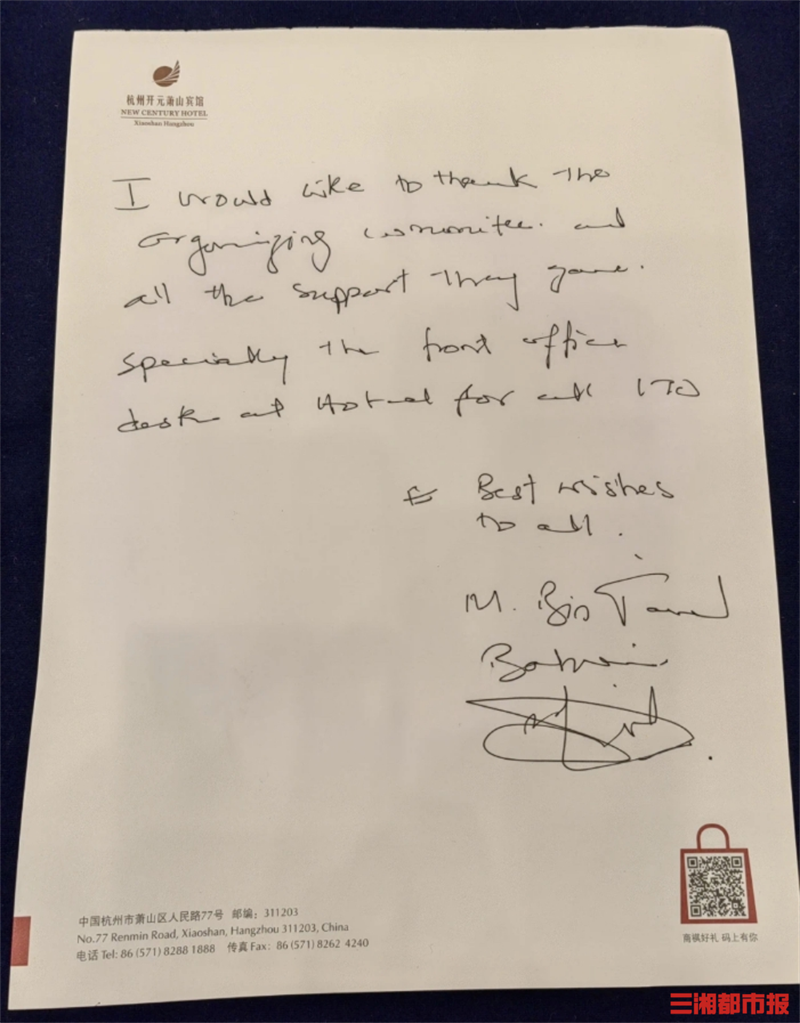 杭州开元萧山宾馆
NEW CENTURY HOTEL
Xiaoshan Hangzhou
I would like to thank the
organizing committee. and
all the support they gave.
specially the front office
desk at Hotel for all ITO
& Best wishes
to all.
M. Bin
中国杭州市萧山区人民路77号 邮编：311203
No.77 Renmin Road, Xiaoshan, Hangzhou 311203, China
电话 Tel: 86 (571) 8288 1888 传真 Fax: 86 (571) 8262 4240
商祺好礼 码上有你
三湘都市报